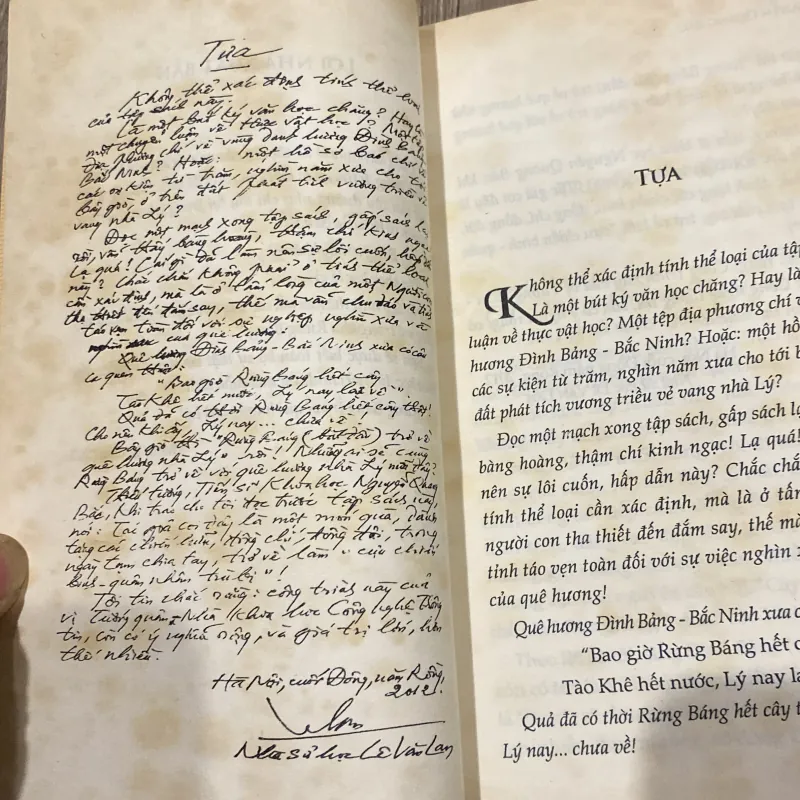 Tựa
Không thể xác định tính thể loại
của tập sách này.
Là một bút ký văn học chăng? Hay là
một chuyên luận về thực vật học? Một tệp
địa phương chí về vùng danh hương Đình Bảng
Bắc Ninh? Hoặc: một hồ sơ báo chí về
các sự kiện từ trăm, nghìn năm xưa cho tới
bây giờ, ở trên đất phát tích vương triều vẻ
vang nhà Lý?
Đọc một mạch xong tập sách, gấp sách lại
rồi, vẫn thấy bàng hoàng, thậm chí kinh ngạc!
Lạ quá! Cái gì đã làm nên sự lôi cuốn, hấp dẫn
này? Chắc chắn không phải ở tính thể loại
cần xác định, mà là ở tấm lòng của một người con
tha thiết đến đắm say, thế mà vẫn chu đáo và tỉnh
táo vẹn toàn đối với sự việc nghìn xưa và
nghìn sau của quê hương!
Quê hương Đình Bảng - Bắc Ninh xưa có câu
ca quen thuộc:
"Bao giờ Rừng Báng hết cây,
Tào Khê hết nước, Lý nay lại về".
Quả đã có thời Rừng Báng hết cây thật!
Cho nên khi ấy Lý nay... chưa về!
Bây giờ thì "Rừng Báng (bắt đầu) trở về
quê hương nhà Lý" rồi! Nhưng ai sẽ cùng
Rừng Báng trở về với quê hương nhà Lý mến thương?
Thiếu tướng, Tiến sĩ Khoa học Nguyễn Quang
Bắc, khi trao cho tôi đọc trước tập sách này,
nói: Tác giả coi đây là một món quà, dành
tặng các chiến hữu, đồng chí, đồng đội, trong
ngày tạm chia tay, trở về làm "cựu chiến
binh - quân nhân trí thị"!
Tôi tin chắc rằng: công trình này của
vị Tướng quân - Nhà Khoa học Công nghệ Thông
tin, còn có ý nghĩa rộng, và giá trị lớn, hơn
thế nhiều.
Hà Nội, cuối Đông, năm Rồng,
2012!
Nhà sử học Lê Văn Lan
TỰA
Không thể xác định tính thể loại của tập
Là một bút ký văn học chăng? Hay là
luận về thực vật học? Một tệp địa phương chí v
hương Đình Bảng - Bắc Ninh? Hoặc: một hồ
các sự kiện từ trăm, nghìn năm xưa cho tới b
đất phát tích vương triều vẻ vang nhà Lý?
Đọc một mạch xong tập sách, gấp sách lạ
bàng hoàng, thậm chí kinh ngạc! Lạ quá!
nên sự lôi cuốn, hấp dẫn này? Chắc chắ
tính thể loại cần xác định, mà là ở tấn
người con tha thiết đến đắm say, thế mà
tỉnh táo vẹn toàn đối với sự việc nghìn x
của quê hương!
Quê hương Đình Bảng - Bắc Ninh xưa c
"Bao giờ Rừng Báng hết c
Tào Khê hết nước, Lý nay la
Quả đã có thời Rừng Báng hết cây t
Lý nay... chưa về!